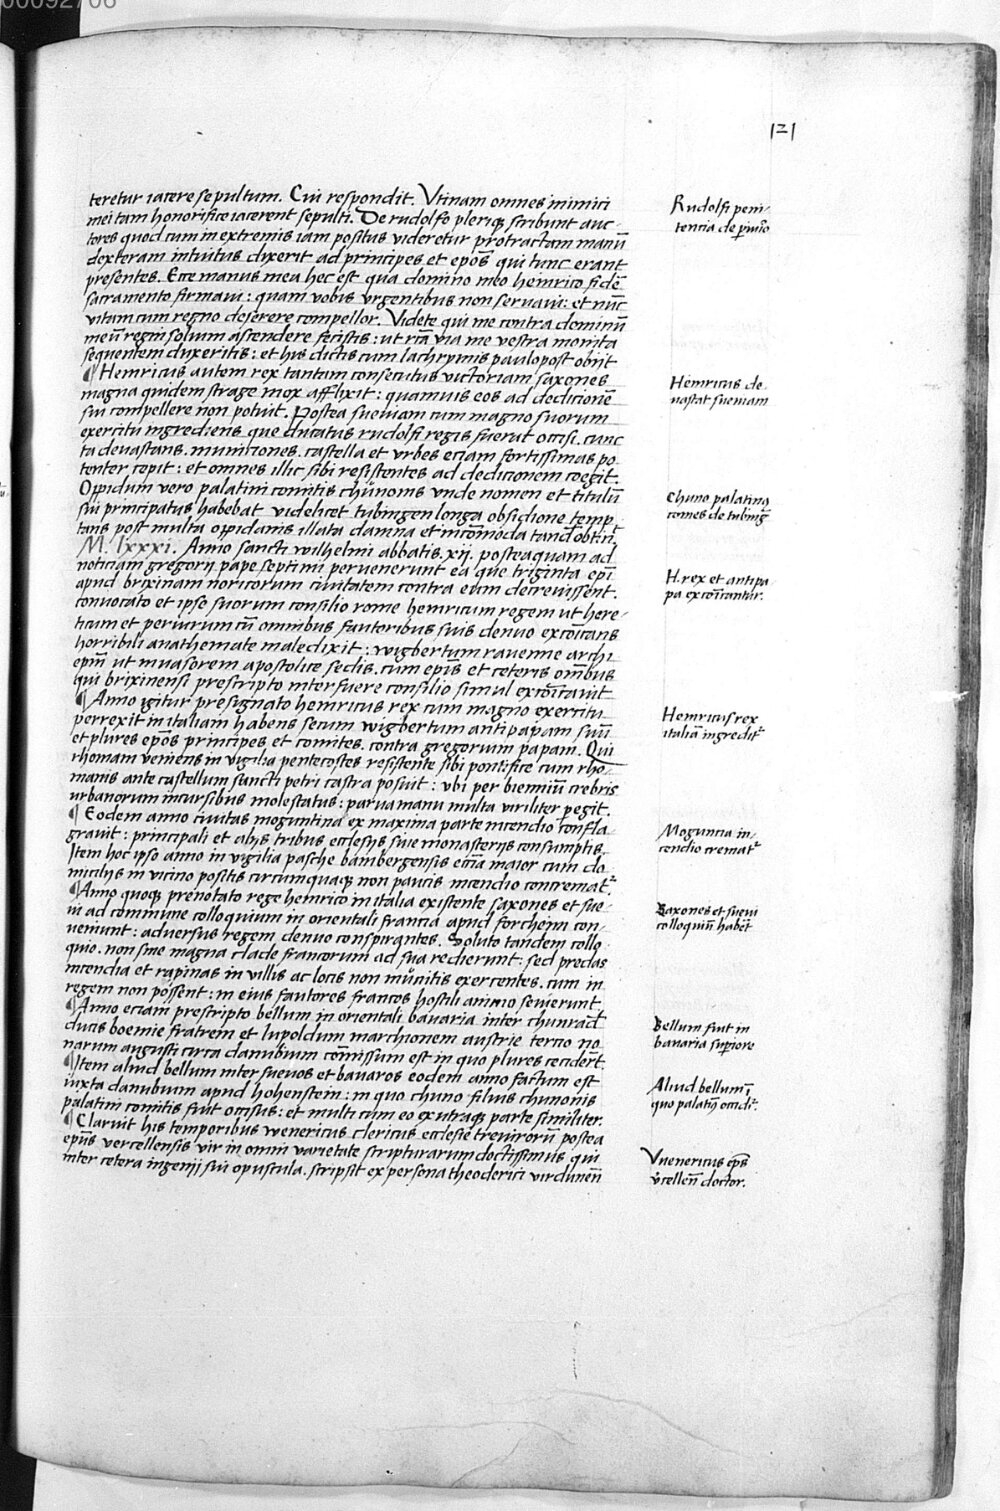 121
teretur iacere sepultum. Cui respondit. Vtinam omnes inimici
mei tam honorifice iacerent sepulti. De rudolfo pleriqꝫ scribunt auc-
tores quod cum in extremis iam positus videretur protractam manū
dexteram intuitus dixerit ad principes et ep̄os qui tunc erant
presentes. Ecce manus mea hec est qua domino meo heinrico fidē
sacramento firmaui: quam vobis vrgentibus non seruaui: et nūc
vitam cum regno deserere compellor. Videte qui me contra dominū
meū regni solium ascendere fecistis: ut rc̄ta via me vestra monita
sequentem duxeritis: et his dictis cum lachrymis paulopost obijt
¶ Heinricus autem rex tantam consecutus victoriam saxones
magna quidem strage mox afflixit: quamuis eos ad dedicionē
sui compellere non potuit. Postea sueuiam cum magno suorum
exercitu ingrediens que ducatus rudolfi regis fuerat occisi. cunc
ta deuastans. municiones. castella et vrbes eciam fortissimas po
tenter cepit: et omnes illic sibi resistentes ad dedicionem coegit.
Oppidum vero palatini comitis chůnonis vnde nomen et titulū
sui principatus habebat videlicet tubingen longa obsidione temp
tans post multa oppidanis illata damna et incōmoda tand̄ obtin̄t
M. lxxxi. Anno sancti wilhelmi abbatis. xij. posteaquam ad
noticiam gregorij pape septimi peruenerunt ea que triginta ep̄i
apud brixinam noricorum ciuitatem contra eum decreuissent.
conuocato et ipse suorum consilio rome heinricum regem ut here-
ticum et periurum cū omnibus fautoribus suis denuo excōicans
horribili anathemate maledixit: wigbertum rauenne archi
ep̄m ut inuasorem apostolice sedis. cum ep̄is et ceteris om̄ibus
qui brixinensi prescripto interfuere consilio simul excōicauit
¶ Anno igitur presignato heinricus rex cum magno exercitu
perrexit in italiam habens secum wigbertum antipapam suū
et plures ep̄os principes et comites. contra gregorium papam. Qui
rhomam veniens in vigilia pentecostes resistente sibi pontifice cum rho-
manis ante castellum sancti petri castra posuit: vbi per bienniū crebris
urbanorum incursibus molestatus: parua manu multa viriliter pegit.
¶ Eodem anno ciuitas moguntina ex maxima parte incendio confla
grauit: principali et alijs tribus ecclesijs siue monasterijs consumptis.
Item hoc ipso anno in vigilia pasche bambergensis ecc̄ia maior cum do
micilijs in vicino positis circumquaqꝫ non paucis incendio concremat᷑.
¶ Anno quoqꝫ prenotato rege heinrico in italia existente saxones et sue
ui ad commune colloquium in orientali francia apud forchein con-
ueniunt: aduersus regem denuo conspirantes. Soluto tandem collo
quio. non sine magna clade francorum ad sua redierunt: sed predas
incendia et rapinas in villis ac locis non munitis exercentes. cum in
regem non possent: in eius fautores francos hostili animo seuierunt
¶ Anno eciam prescripto bellum in orientali bauaria inter chunrad̄
ducis boemie fratrem et lupoldum marchionem austrie tercio no
narum augusti circa danubium com̄issum est in quo plures cecider̄t.
¶ Item aliud bellum inter sueuos et bauaros eodem anno factum est
iuxta danubium apud hohenstein: in quo chuno filius chunonis
palatini comitis fuit occisus: et multi cum eo ex utraqꝫ parte similiter.
¶ Claruit his temporibus wenericus clericus ecclesie treuirorū postea
ep̄us vercellensis vir in omni varietate scripturarum doctissimus qui
inter cetera ingenij sui opuscula. scripsit ex persona theoderici virdunen̄
Rudolfi peni-
tencia de piurio
Heinricus de-
uastat sueuiam
Chuno palatinꝰ
comes de tubinḡ
H. rex et antipa
pa excōicantur.
Heinricus rex
italiā ingredit᷑
Moguncia in-
cendio cremat᷑
Saxones et sueui
colloquiū habēt
Bellum fuit in
bauaria supiore
Aliud bellum ī
quo palatiꝰ occidit᷑.
Vuenericus ep̄s
v̄cellen̄ doctor.